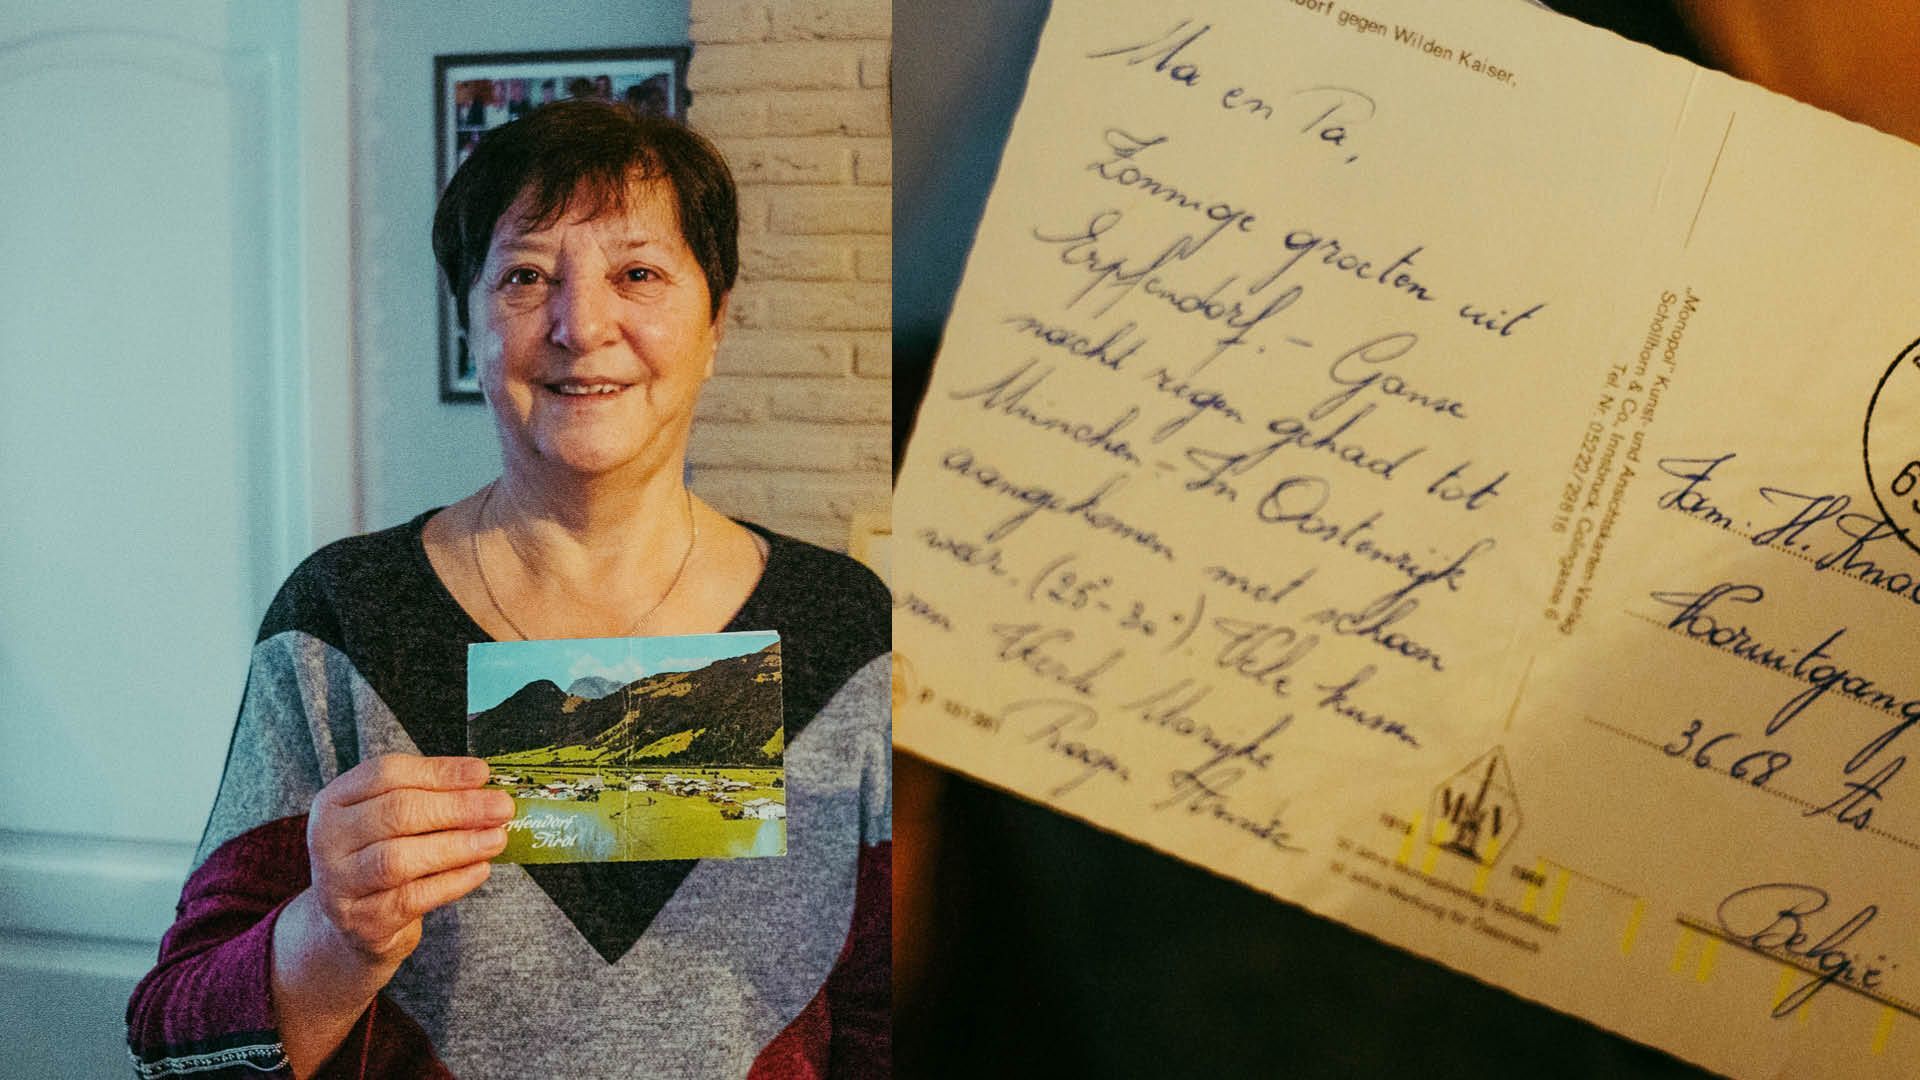 Erpfendorf
Tirol
dorf gegen Wilden Kaiser,
Ma en Pa,
Zonnige groeten uit
Erpfendorf. - Ganse
nacht regen gehad tot
München - In Oostenrijk
aangekomen met schoon
weer. (25° - 30°) Vele kussen
van Marijke
„Monopol" Kunst- und Ansichtskarten-Verlag
Schöllhorn & Co., Innsbruck, Colingasse 6
Tel. Nr. 05222/29616
Fam. H.
Vooruitgang
3668 As
België